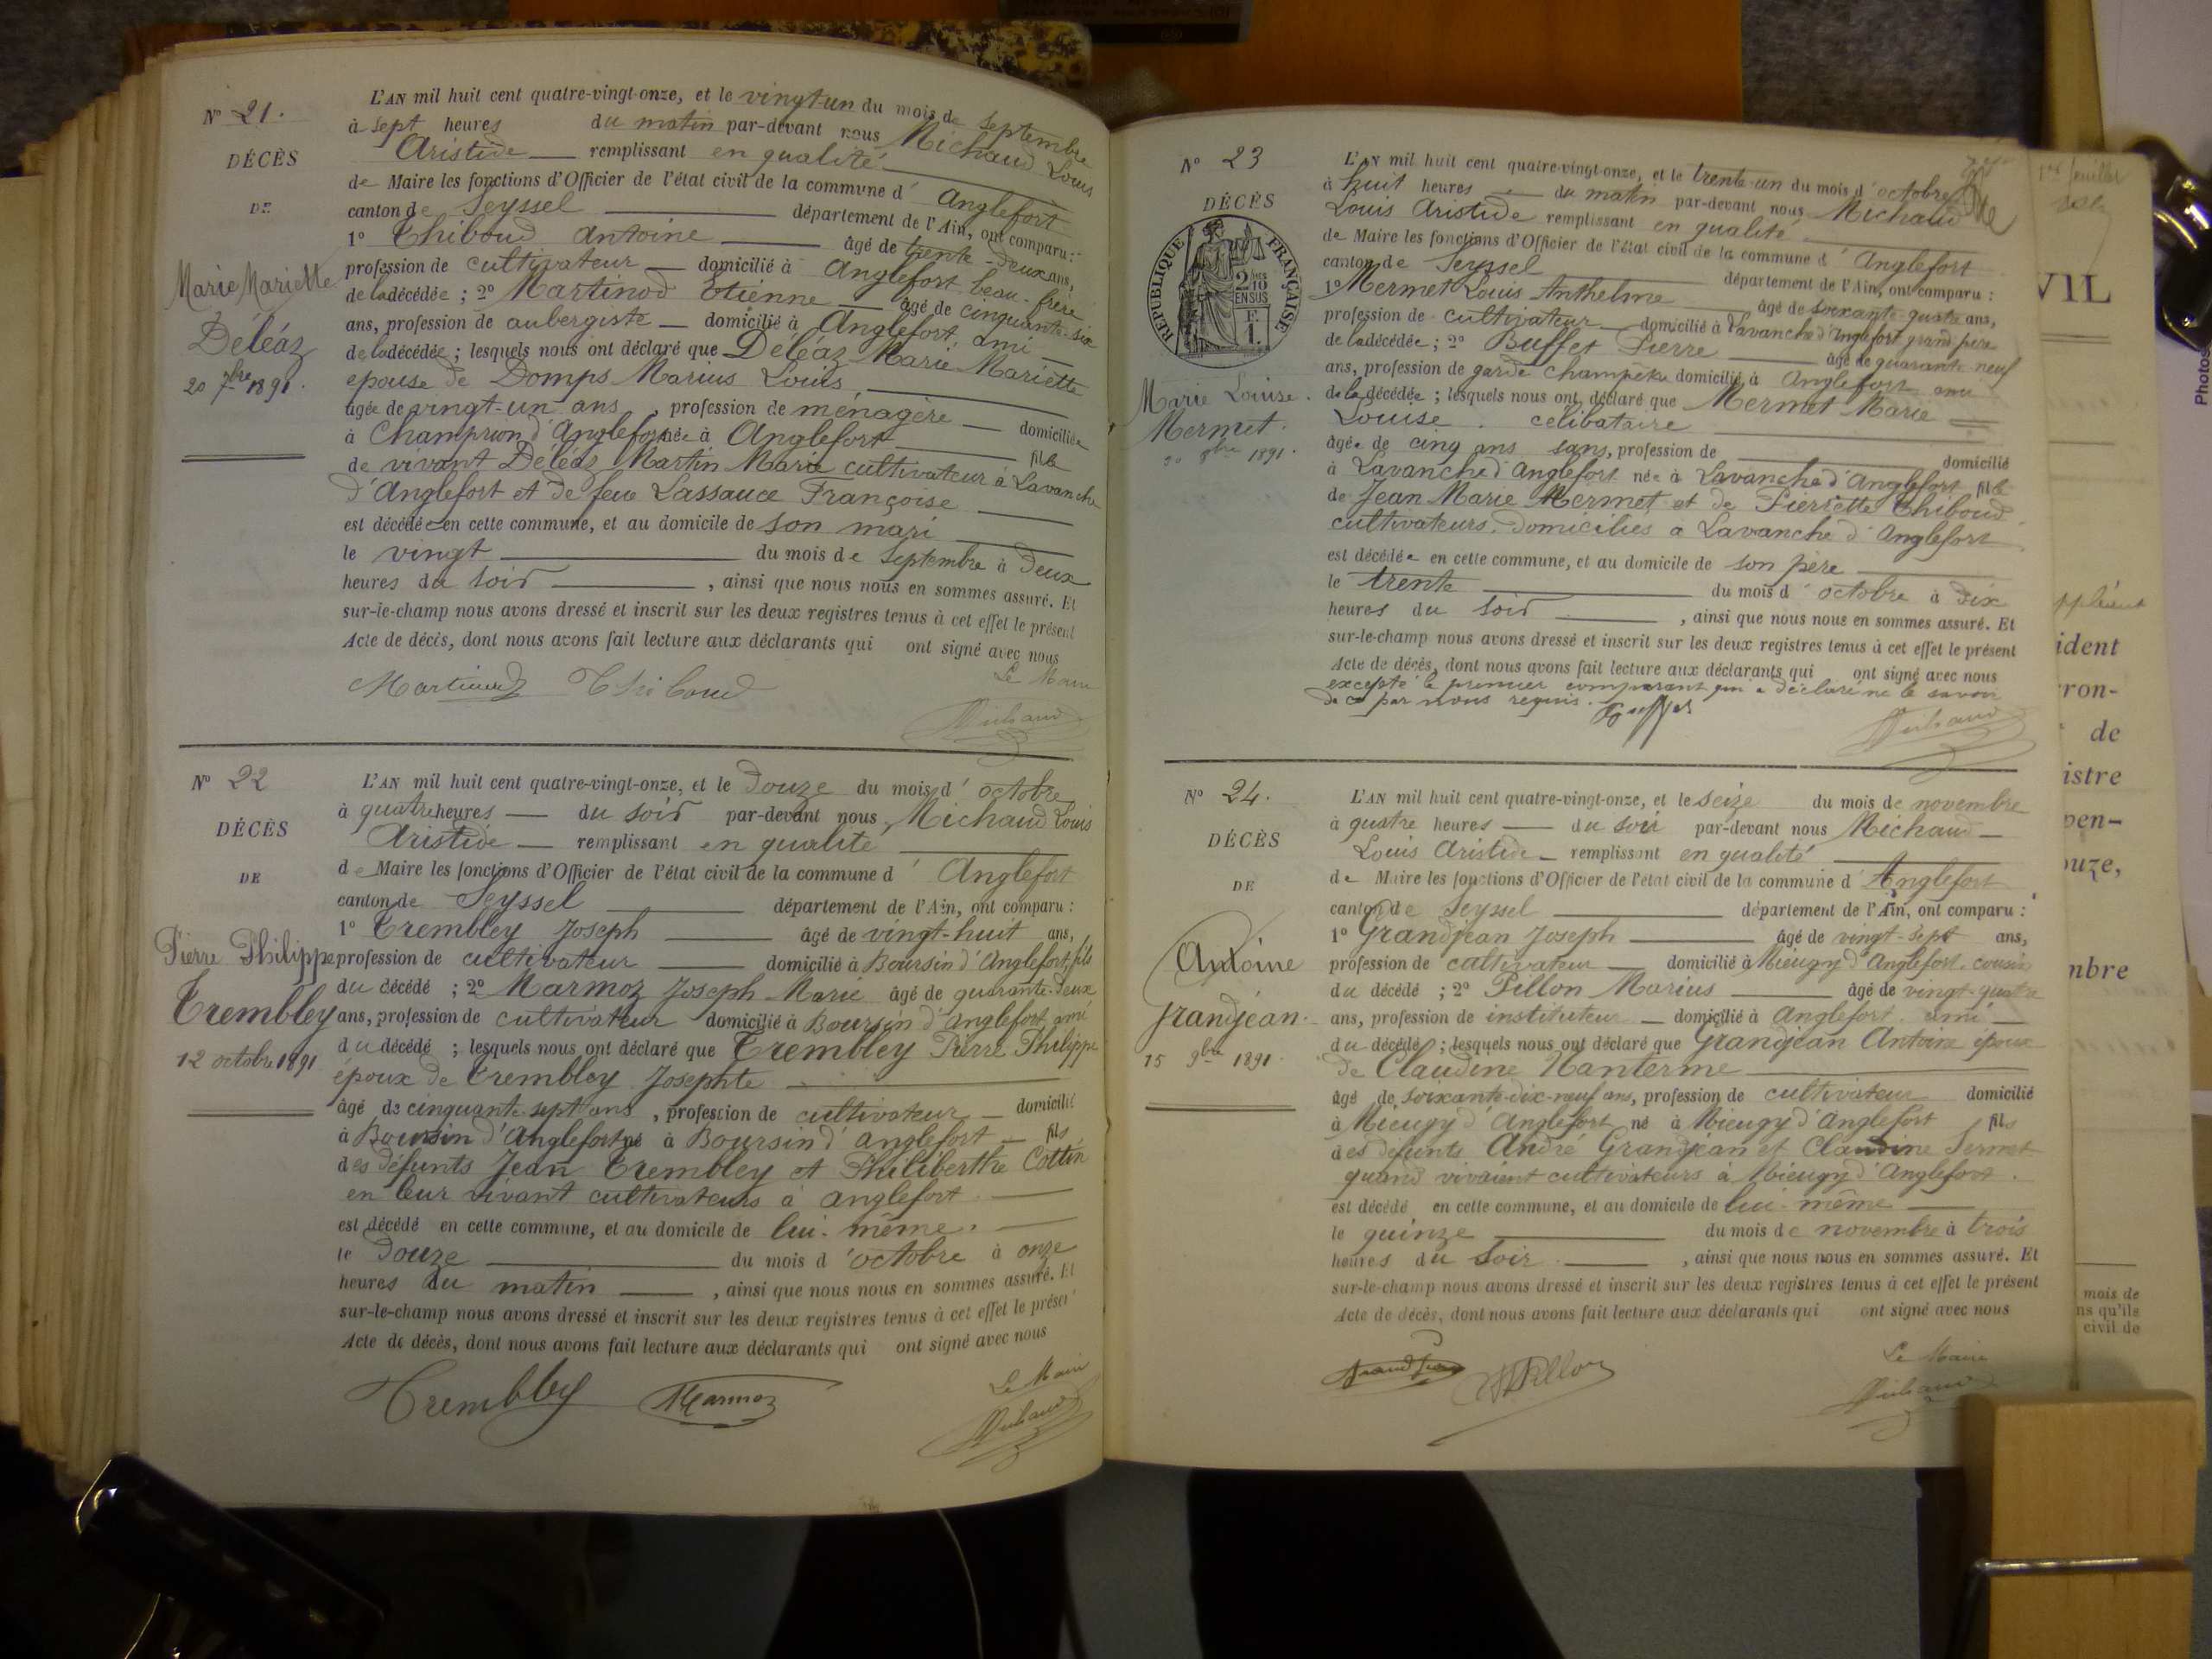 N° 21.
DÉCÈS
DE
Marie Mariette
Déléaz
20 7bre 1891.
L'AN mil huit cent quatre-vingt-onze, et le vingt-un du mois de septembre
à sept heures du matin par-devant nous Michaud Louis
Aristide remplissant en qualité
de Maire les fonctions d'Officier de l'état civil de la commune d' Anglefort
canton de Seyssel département de l'Ain, ont comparu :
1° Thiboud Antoine âgé de trente-deux ans,
profession de cultivateur domicilié à Anglefort beau-frère
de la décédée ; 2° Martinod Etienne âgé de cinquante-six
ans, profession de aubergiste domicilié à Anglefort, ami
de la décédée ; lesquels nous ont déclaré que Déléaz Marie Mariette
épouse de Domps Marius Louis
âgée de vingt-un ans, profession de ménagère domiciliée
à Champrion d'Anglefort née à Anglefort fille
de vivant Déléaz Martin Marie cultivateur à Lavanche
d'Anglefort et de feue Lassauce Françoise
est décédée en cette commune, et au domicile de son mari
le vingt du mois de septembre à deux
heures du soir, ainsi que nous nous en sommes assuré. Et
sur-le-champ nous avons dressé et inscrit sur les deux registres tenus à cet effet le présent
Acte de décès, dont nous avons fait lecture aux déclarants qui ont signé avec nous
Le Maire
Martinod Thiboud
Michaud
N° 22
DÉCÈS
DE
Pierre Philippe
Trembley
12 octobre 1891
L'AN mil huit cent quatre-vingt-onze, et le douze du mois d' octobre
à quatre heures du soir par-devant nous Michaud Louis
Aristide remplissant en qualité
de Maire les fonctions d'Officier de l'état civil de la commune d' Anglefort
canton de Seyssel département de l'Ain, ont comparu :
1° Trembley Joseph âgé de vingt-huit ans,
profession de cultivateur domicilié à Boursin d'Anglefort, fils
du décédé ; 2° Marmoz Joseph Marie âgé de quarante-deux
ans, profession de cultivateur domicilié à Boursin d'Anglefort ami
du décédé ; lesquels nous ont déclaré que Trembley Pierre Philippe
époux de Trembley Josephte
âgé de cinquante-sept ans, profession de cultivateur domicilié
à Boursin d'Anglefort né à Boursin d'anglefort fils
des défunts Jean Trembley et Philiberthe Cottin
en leur vivant cultivateurs à anglefort.
est décédé en cette commune, et au domicile de lui-même.
le douze du mois d'octobre à onze
heures du matin, ainsi que nous nous en sommes assuré. Et
sur-le-champ nous avons dressé et inscrit sur les deux registres tenus à cet effet le présent
Acte de décès, dont nous avons fait lecture aux déclarants qui ont signé avec nous
Le Maire
Trembley Marmoz
Michaud
N° 23
DÉCÈS
RÉPUBLIQUE FRANÇAISE
2/10 EN SUS
F. 1.
Marie Louise.
Mermet.
30 8bre 1891.
L'AN mil huit cent quatre-vingt-onze, et le trente-un du mois d'octobre
à huit heures du matin par-devant nous Michaud
Louis Aristide remplissant en qualité
de Maire les fonctions d'Officier de l'état civil de la commune d' Anglefort
canton de Seyssel département de l'Ain, ont comparu :
1° Mermet Louis Anthelme âgé de soixante-quatre ans,
profession de cultivateur domicilié à Lavanche d'Anglefort grand père
de la décédée ; 2° Buffet Pierre âgé de quarante-neuf
ans, profession de garde champêtre domicilié à Anglefort ami
de la décédée ; lesquels nous ont déclaré que Mermet Marie
Louise. célibataire
âgée de cinq ans sans, profession de domicilié
à Lavanche d'Anglefort née à Lavanche d'Anglefort fille
de Jean Marie Mermet et de Pierrette Thiboud
cultivateurs. domiciliés à Lavanche d'Anglefort
est décédée en cette commune, et au domicile de son père
le trente du mois d'octobre à dix
heures du soir, ainsi que nous nous en sommes assuré. Et
sur-le-champ nous avons dressé et inscrit sur les deux registres tenus à cet effet le présent
Acte de décès, dont nous avons fait lecture aux déclarants qui ont signé avec nous
excepté le premier comparant qui a déclaré ne le savoir
de ce par nous requis. Buffet
Michaud
N° 24.
DÉCÈS
DE
Antoine
Grandjean.
15 9bre 1891.
L'AN mil huit cent quatre-vingt-onze, et le seize du mois de novembre
à quatre heures du soir par-devant nous Michaud
Louis Aristide remplissant en qualité
de Maire les fonctions d'Officier de l'état civil de la commune d' Anglefort
canton de Seyssel département de l'Ain, ont comparu :
1° Grandjean Joseph âgé de vingt-sept ans,
profession de cultivateur domicilié à Mieugy d'Anglefort. cousin
du décédé ; 2° Pillon Marius âgé de vingt-quatre
ans, profession de instituteur domicilié à Anglefort. ami
du décédé ; lesquels nous ont déclaré que Grandjean Antoine époux
de Claudine Nanterme
âgé de soixante-dix-neuf ans, profession de cultivateur domicilié
à Mieugy d'Anglefort né à Mieugy d'Anglefort fils
des défunts André Grandjean et Claudine Sermet
quand vivaient cultivateurs à Mieugy d'Anglefort.
est décédé en cette commune, et au domicile de lui-même
le quinze du mois de novembre à trois
heures du soir, ainsi que nous nous en sommes assuré. Et
sur-le-champ nous avons dressé et inscrit sur les deux registres tenus à cet effet le présent
Acte de décès, dont nous avons fait lecture aux déclarants qui ont signé avec nous
Le Maire
Grandjean Pillon
Michaud
VIL
ident
ron-
de
istre
pen-
ouze,
mbre
mois de
ns qu'ils
civil de
Photos